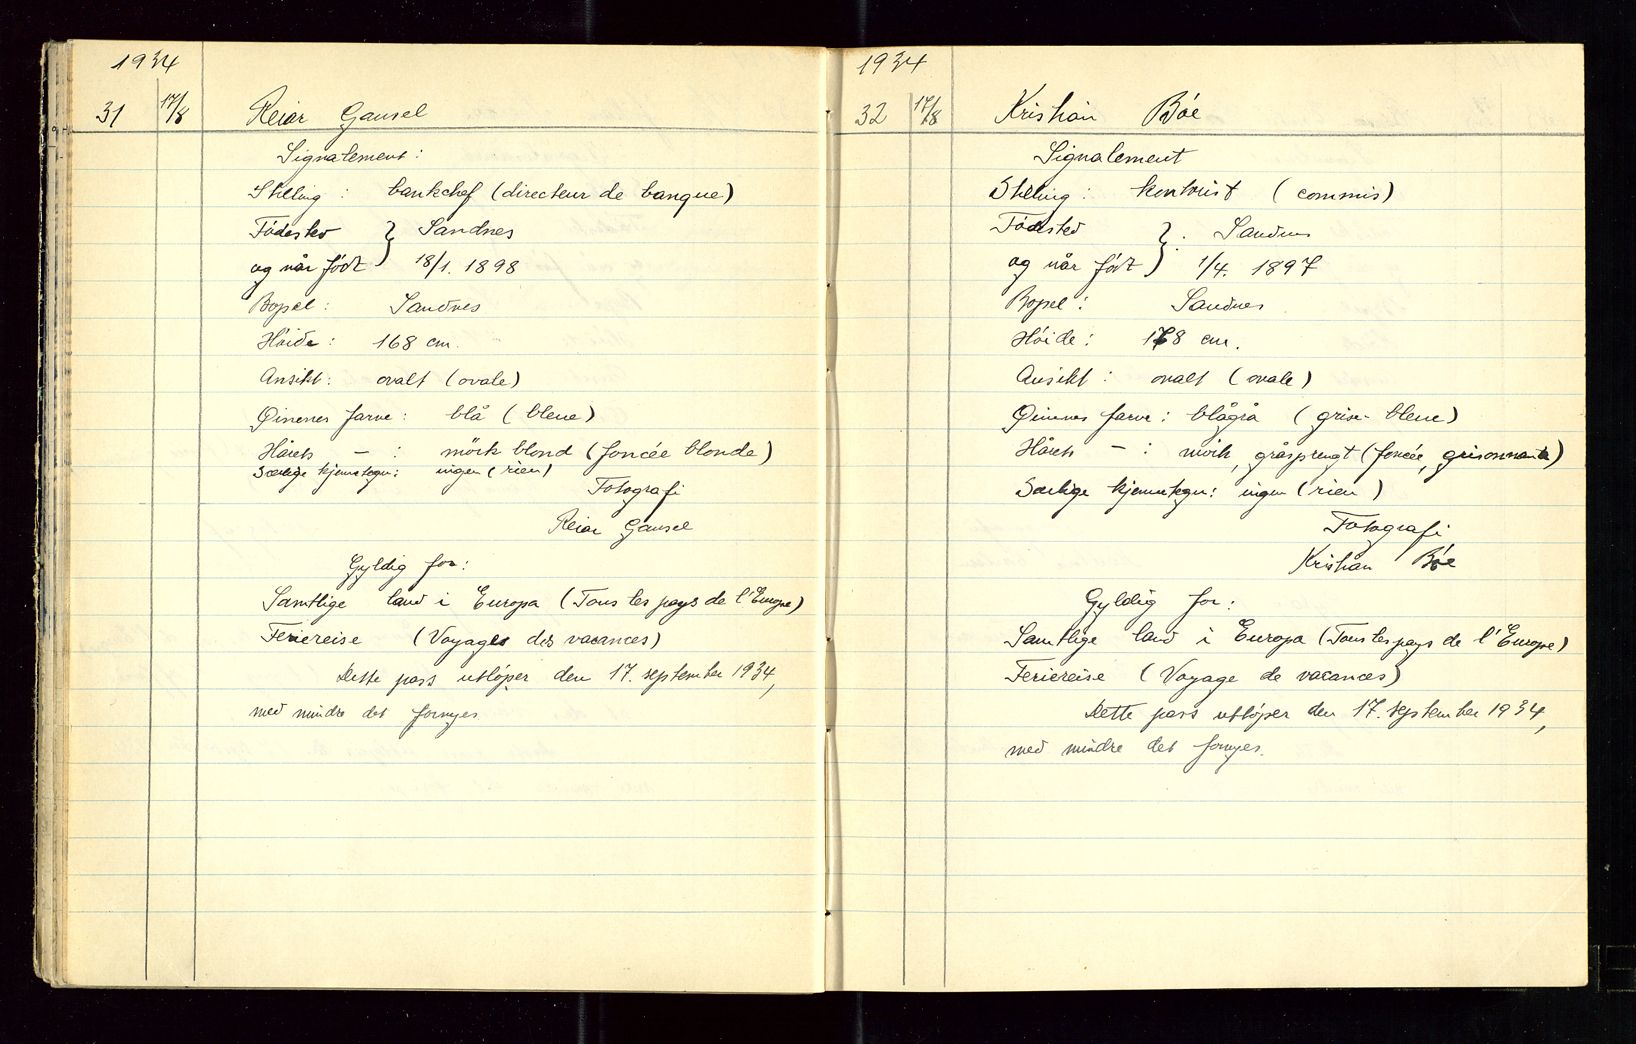 1934
31 17/8 Reiar Gausel
Signalement:
Stilling: bankchef (directeur de banque)
Fødested } Sandnes
og når født } 18/1. 1898
Bopel: Sandnes
Höide: 168 cm.
Ansikt: ovalt (ovale)
Øinenes farve: blå (bleue)
Hårets — : mörk blond (foncée blonde)
Særlige kjennetegn: ingen (rien)
Fotografi
Reiar Gausel
Gyldig for:
Samtlige land i Europa (Tous les pays de l'Europe)
Feriereise (Voyages des vacances)
Dette pass utløper den 17. september 1934,
med mindre det fornyes.
1934
32 17/8 Kristian Bóe
Signalement
Stilling: kontorist (commis)
Födested } : Sandnes
og når født } 1/4. 1897
Bopel: Sandnes
Höide: 178 cm.
Ansikt: ovalt (ovale)
Øinenes farve: blågrå (grise-bleue)
Hårets — : mörk, gråsprengt (foncée, grisonnante)
Særlige kjennetegn: ingen (rien)
Fotografi
Kristian Bóe
Gyldig for:
Samtlige land i Europa (Tous les pays de l'Europe)
Feriereise (Voyage de vacances)
Dette pass utløper den 17. september 1934,
med mindre det fornyes.